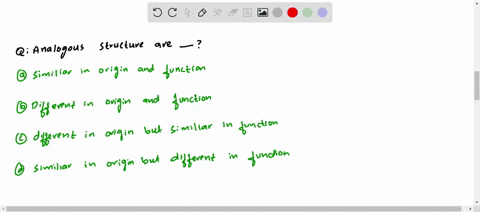 Q: Analogous structure are __ ?
(a) similiar in origin and function
(b) Different in origin and function
(c) dfferent in origin but similiar in function
(d) similiar in origin but different in function